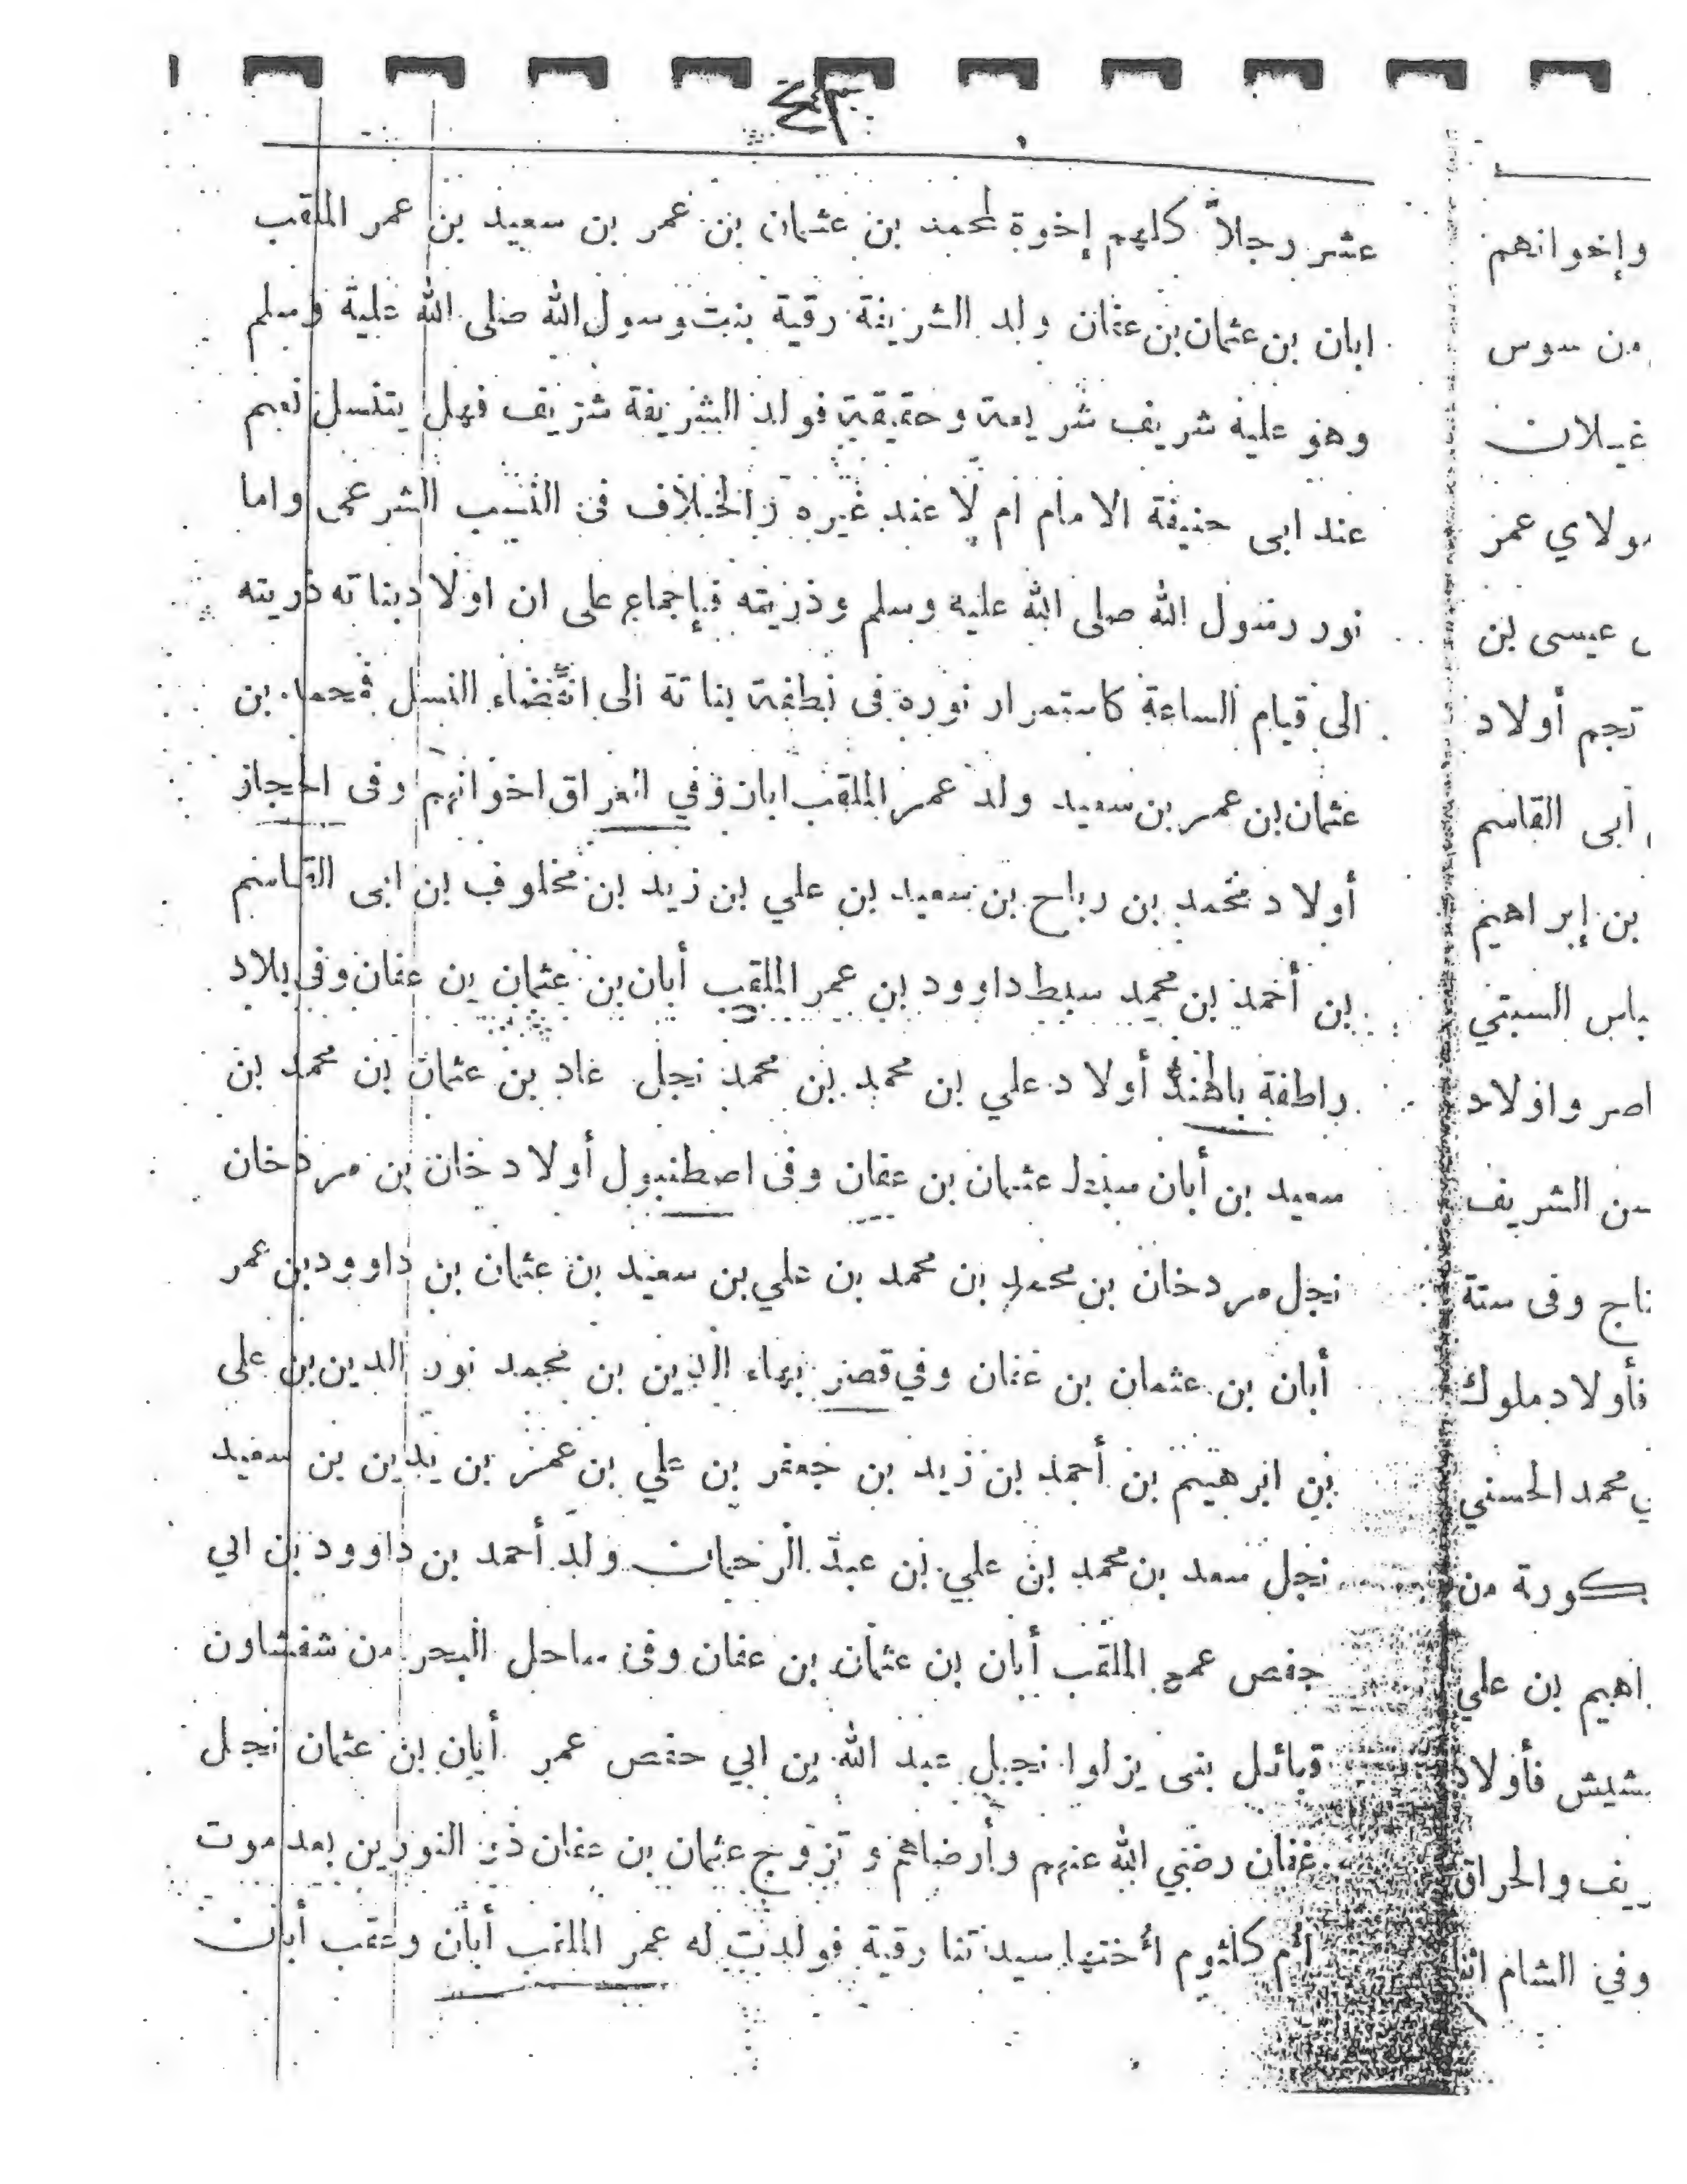 ٤٣
عشر رجالاً كلهم إخوة لمحمد بن عثمان بن عمر بن سعيد بن عمر الملقب
ابان بن عثمان بن عفان ولد الشريفة رقية بنت رسول الله صلى الله علية وسلم
وهو عليه شريف شريعة وحقيقة فولد الشريفة شريف فهل يتنسل نعم
عند ابى حنيفة الامام ام لا عند غيره والخلاف فى النسب الشرعى واما
نور رسول الله صلى الله عليه وسلم وذريته فبإجماع على ان اولاد بناته ذريته
الى قيام الساعة كاستمرار نوره فى نطفة بناتة الى انقضاء النسل فمحمد بن
عثمان بن عمر بن سعيد ولد عمر الملقب ابان وفي العراق اخوانهم وفى الحجاز
أولاد محمد بن رباح بن سعيد بن علي بن زيد بن مخلوف بن ابى القاسم
بن أحمد بن محمد سبط داوود بن عمر الملقب أبان بن عثمان بن عفان وفى بلاد
راطفة بالهند أولاد علي بن محمد بن محمد نجل عاد بن عثمان بن محمد بن
سعيد بن أبان عثمان بن عفان وفى اصطنبول أولاد خان بن مردخان
نجل مردخان بن محمد بن محمد بن علي بن سعيد بن عثمان بن داوود بن عمر
أبان بن عثمان بن عفان وفي قصر بهاء الدين بن محمد نور الدين بن على
بن ابرهيم بن أحمد بن زيد بن جعفر بن علي بن عمر بن يدين بن سعيد
نجل سعد بن محمد بن علي بن عبد الرحمان ولد أحمد بن داوود بن ابي
حفص عمر الملقب أبان بن عثمان بن عفان وفى ساحل البحر من شفشاون
قبائل بنى يزلوا نجل عبد الله بن ابي حفص عمر أبان بن عثمان نجل
عفان رضي الله عنهم وأرضاهم و تزوج عثمان بن عفان ذى النورين بعد موت
أم كلثوم أختها سيدتنا رقية فولدت له عمر الملقب أبان وعقب أبان
وإخوانهم
من سوس
غيلان
مولاي عمر
عيسى بن
نجم أولاد
أبى القاسم
بن إبراهيم
باس السبتي
اصر واولاد
سن الشريف
تاج وفى ستة
فأولاد ملوك
ي محمد الحسني
بكورة من
اهيم بن علي
شيش فأولاد
ريف والحراق
وفي الشام